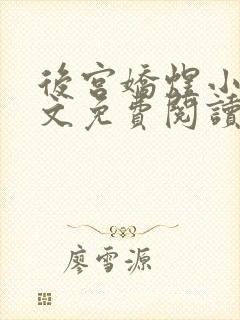 後宮嬌煋小
文免費閱讀
廖雪源